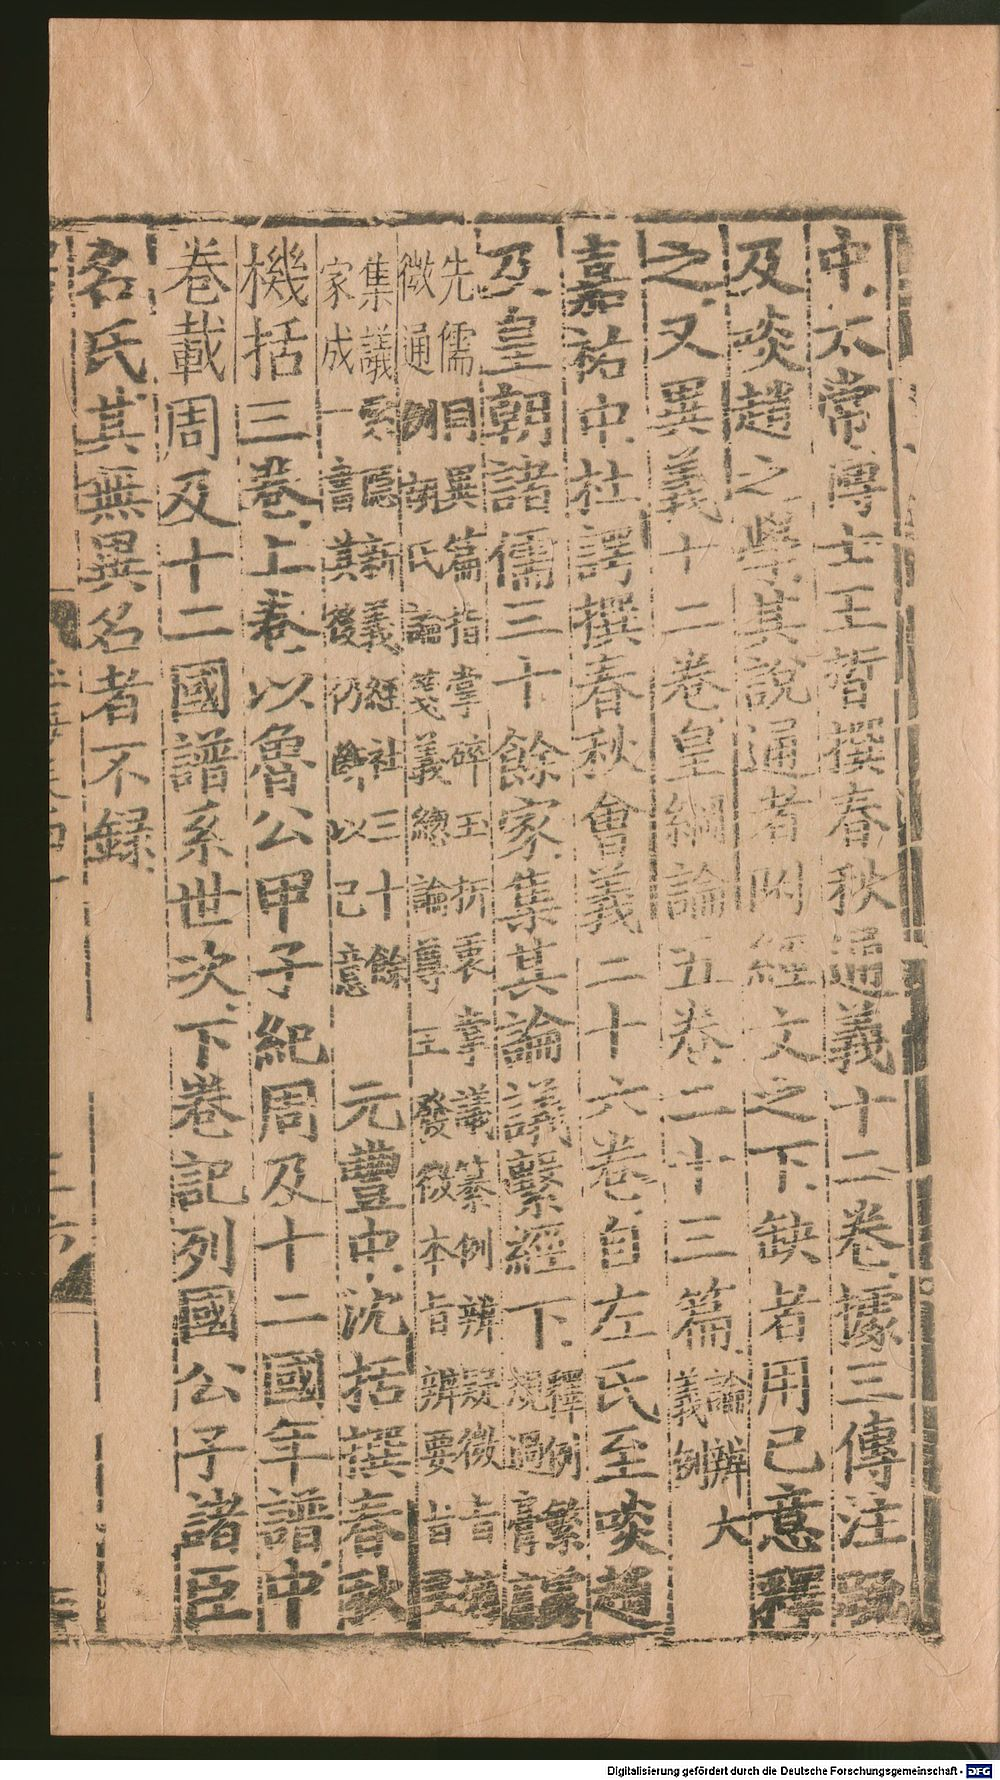 中太常博士王晳撰春秋通義十二卷據三傳注疏
及啖趙之學其說通者附經文之下缺者用己意釋
之又異義十二卷皇綱論五卷二十三篇論辨大
義例
嘉祐中杜諤撰春秋會義二十六卷自左氏至啖趙
及皇朝諸儒三十餘家集其論議繫經下釋例繁露
規過膏
先儒同異篇指掌碎玉折衷掌議纂例辨疑微旨摘
微通例胡氏論箋義總論尊王發微本旨辨要旨
集議索隱新義經社三十餘
家成一言其後仍斷以己意元豐中沈括撰春秋
機括三卷上卷以魯公甲子紀周及十二國年譜中
卷載周及十二國譜系世次下卷記列國公子諸臣
名氏其無異名者不錄
Digitalisierung gefördert durch die Deutsche Forschungsgemeinschaft - DFG